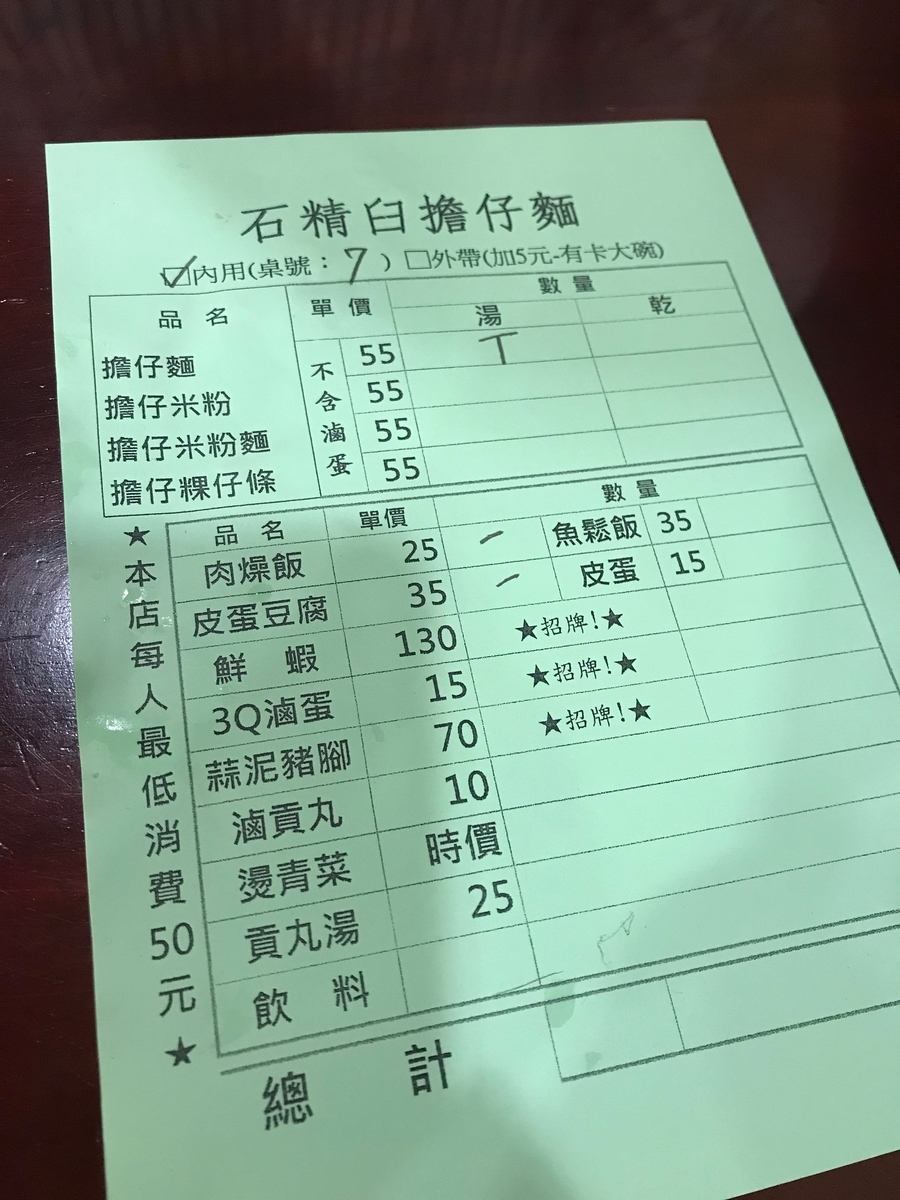 石精臼擔仔麵
☑內用(桌號：7) □外帶(加5元-有卡大碗)
品名 單價 數量
湯 乾
擔仔麵 不含滷蛋 55 丅
擔仔米粉 55
擔仔米粉麵 55
擔仔粿仔條 55
★本店每人最低消費50元★
品名 單價 數量
肉燥飯 25 一 魚鬆飯 35
皮蛋豆腐 35 一 皮蛋 15
鮮蝦 130 ★招牌!★
3Q滷蛋 15 ★招牌!★
蒜泥豬腳 70 ★招牌!★
滷貢丸 10
燙青菜 時價
貢丸湯 25
飲料
總計